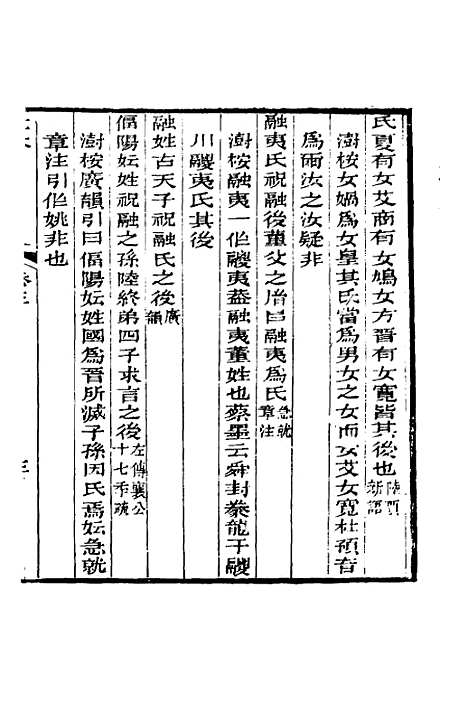 氏夏有女艾商有女鳩女方晉有女寬皆其後也
澍桉女媧為女皇其氏當為男女之女而女艾女寬杜預有
為爾汝之汝疑非
融夷氏祝融後董父之胎曰融夷為氏急就章注
澍桉融夷一作鬷夷葢融夷董姓也蔡墨云舜封豢龍于鬷
川鬷夷氏其後
融姓古天子祝融氏之後廣韻
偪陽妘姓祝融之孫陸終弟四子求言之後左傳襄公十七年疏
澍桉廣韻引曰偪陽妘姓國為晉所滅子孫因氏焉妘急就
章注引作姚非也